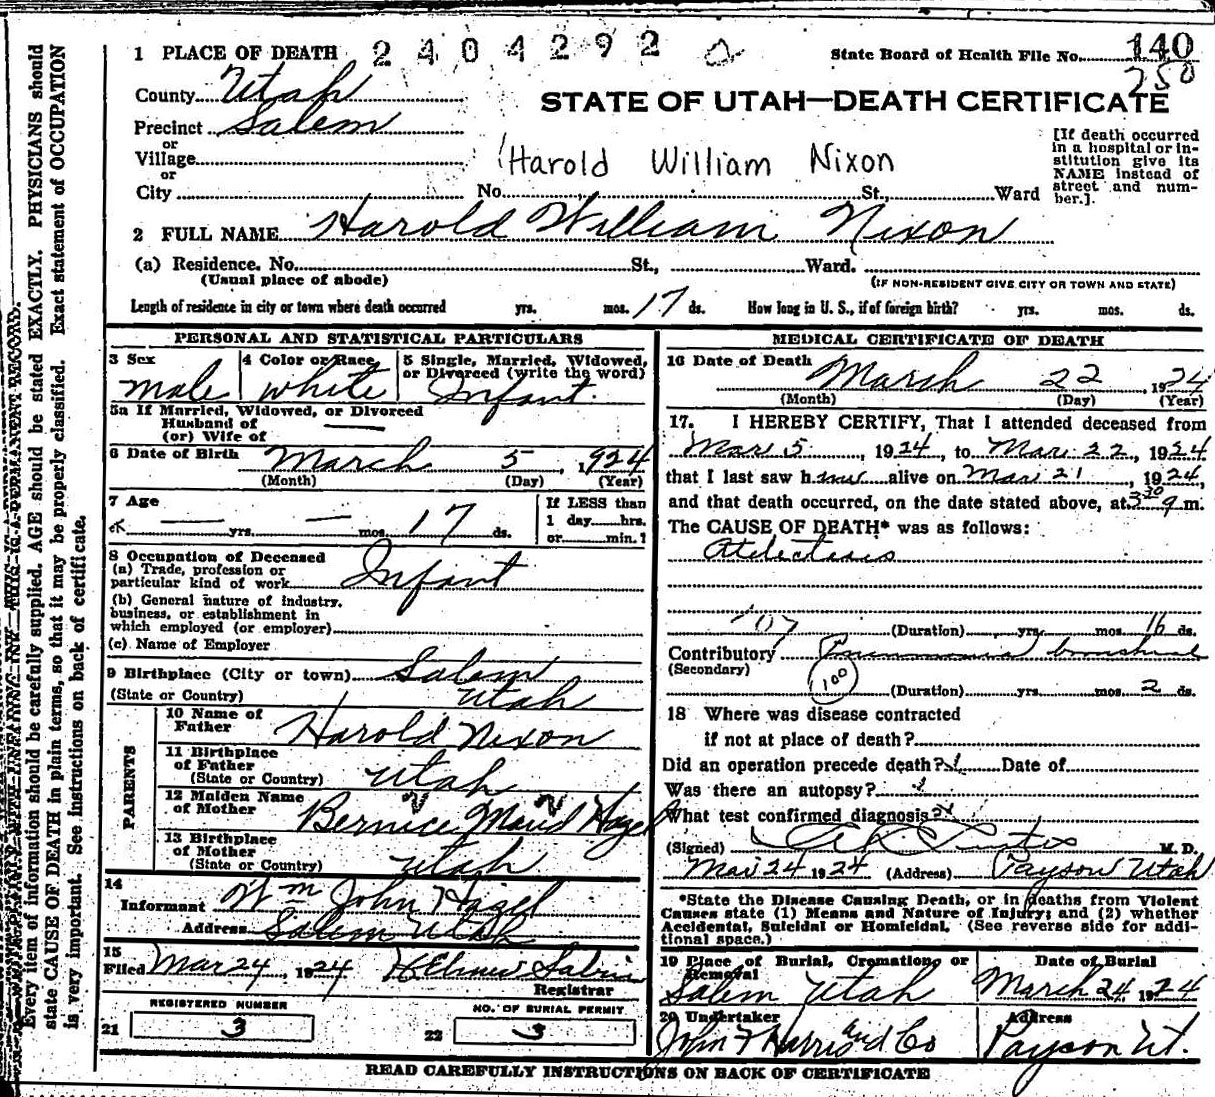 1 PLACE OF DEATH 2404292
State Board of Health File No. 140
250
County Utah
STATE OF UTAH—DEATH CERTIFICATE
Precinct Salem
or
Village
or
City No. St., Ward
Harold William Nixon
[If death occurred
in a hospital or in-
stitution give its
NAME instead of
street and num-
ber.].
2 FULL NAME Harold William Nixon
(a) Residence. No. St., Ward.
(Usual place of abode)
(IF NON-RESIDENT GIVE CITY OR TOWN AND STATE)
Length of residence in city or town where death occurred yrs. mos. 17 ds. How long in U. S., if of foreign birth? yrs. mos. ds.
PERSONAL AND STATISTICAL PARTICULARS
3 Sex
male
4 Color or Race
white
5 Single, Married, Widowed,
or Divorced (write the word)
Infant.
5a If Married, Widowed, or Divorced
Husband of
(or) Wife of
6 Date of Birth March 5, 1924
(Month) (Day) (Year)
7 Age
yrs. mos. 17 ds.
If LESS than
1 day hrs.
or min.?
8 Occupation of Deceased
(a) Trade, profession or
particular kind of work Infant
(b) General nature of industry,
business, or establishment in
which employed (or employer)
(c) Name of Employer
9 Birthplace (City or town) Salem
(State or Country) Utah
PARENTS
10 Name of
Father Harold Nixon
11 Birthplace
of Father
(State or Country) Utah
12 Maiden Name
of Mother Bernice Maud Hazel
13 Birthplace
of Mother
(State or Country) Utah
14
Informant Wm John Hazel
Address Salem Utah
15
Filed Mar 24, 1924 Sabin
Registrar
REGISTERED NUMBER
21 3
NO. OF BURIAL PERMIT
22 3
MEDICAL CERTIFICATE OF DEATH
16 Date of Death March 22 1924
(Month) (Day) (Year)
17. I HEREBY CERTIFY, That I attended deceased from
Mar 5, 1924, to Mar 22, 1924
that I last saw h im alive on Mar 21, 1924,
and that death occurred, on the date stated above, at 3 30 a m.
The CAUSE OF DEATH* was as follows:
Atelectasis
107 (Duration) yrs. mos. 16 ds.
Contributory Pneumonia bronchial
(Secondary)
100 (Duration) yrs. mos. 2 ds.
18 Where was disease contracted
if not at place of death?
Did an operation precede death? Date of
Was there an autopsy?
What test confirmed diagnosis?
(Signed) M. D.
Mar 24 1924 (Address) Payson Utah
*State the Disease Causing Death, or in deaths from Violent
Causes state (1) Means and Nature of Injury; and (2) whether
Accidental, Suicidal or Homicidal. (See reverse side for addi-
tional space.)
19 Place of Burial, Cremation or
Removal
Salem Utah
Date of Burial
March 24 1924
20 Undertaker
John F Harris and Co
Address
Payson Ut.
READ CAREFULLY INSTRUCTIONS ON BACK OF CERTIFICATE
Every item of information should be carefully supplied. AGE should be stated EXACTLY. PHYSICIANS should
state CAUSE OF DEATH in plain terms, so that it may be properly classified. Exact statement of OCCUPATION
is very important. See instructions on back of certificate.